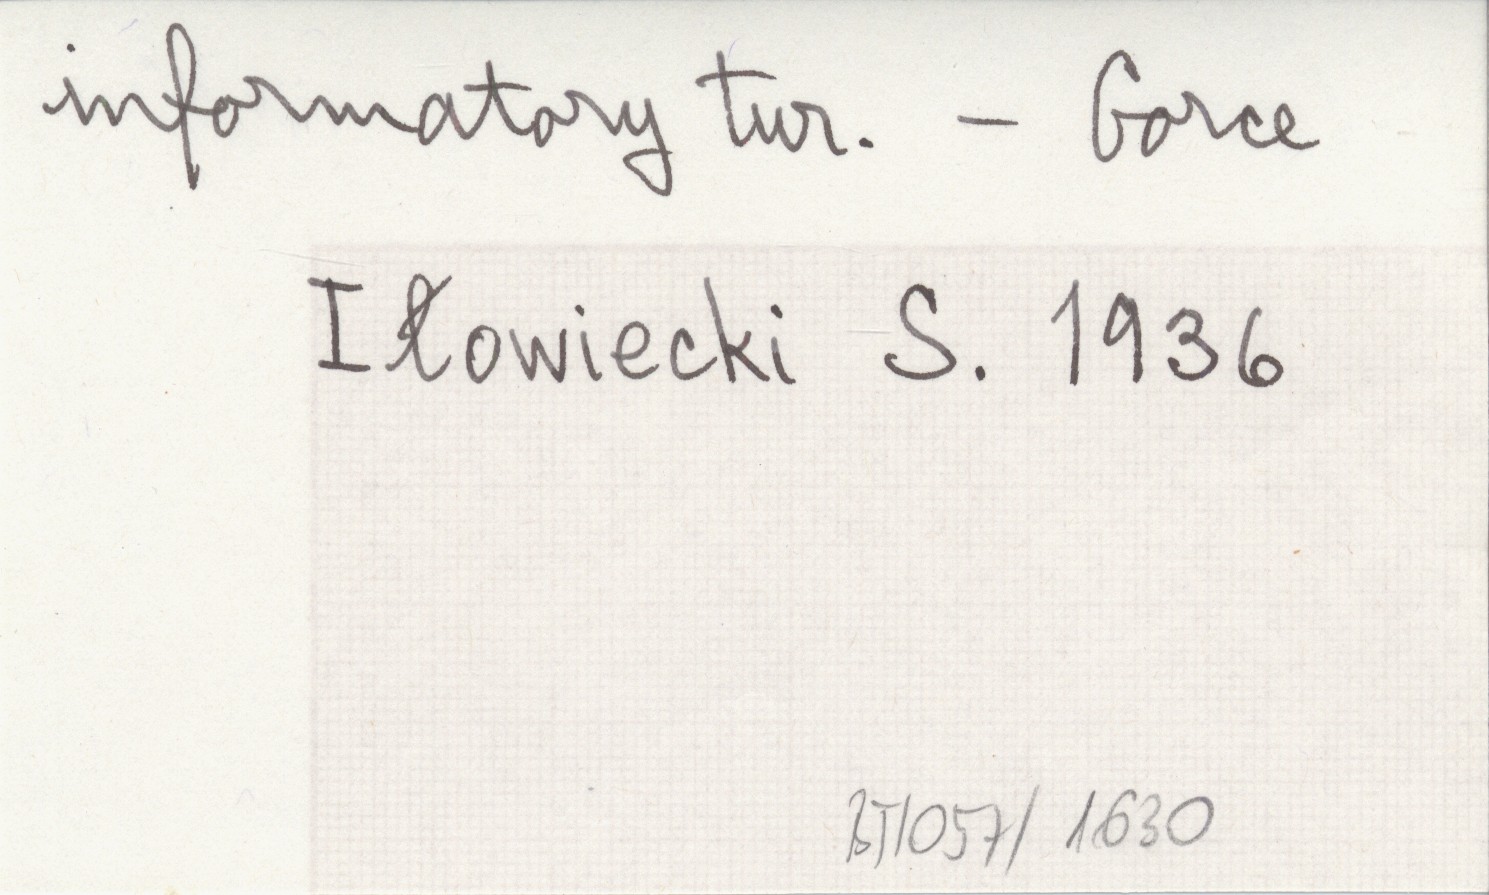 informatory tur. - Gorce
Iłowiecki S. 1936
BT/057/ 1630